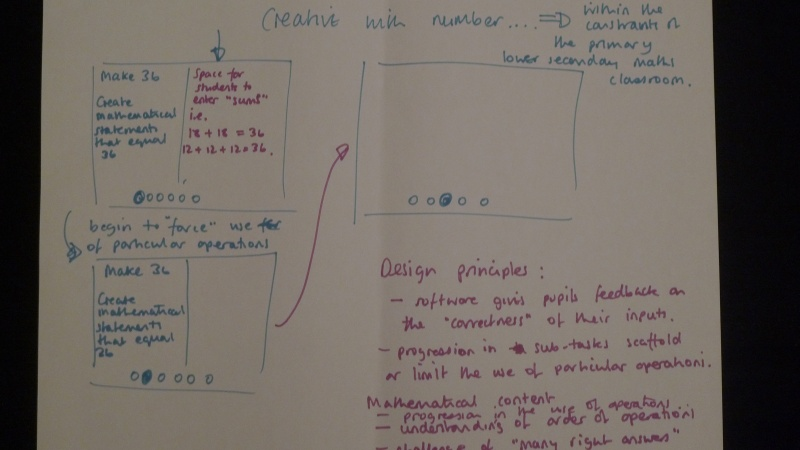 Creative with number.... ⇒ within the
constraints of
the primary
lower secondary maths
classroom.
Make 36
Create
mathematical
statements
that equal
36
Space for
students to
enter "sums"
i.e.
18 + 18 = 36
12 + 12 + 12 = 36.
begin to "force" use
of particular operations
Make 36
Create
mathematical
statements
that equal
36
Design principles:
- software gives pupils feedback on
the "correctness" of their inputs.
- progression in sub-tasks scaffold
or limit the use of particular operations.
Mathematical content
- progression in the use of operations
- understanding of order of operations
- challenge of "many right answers"